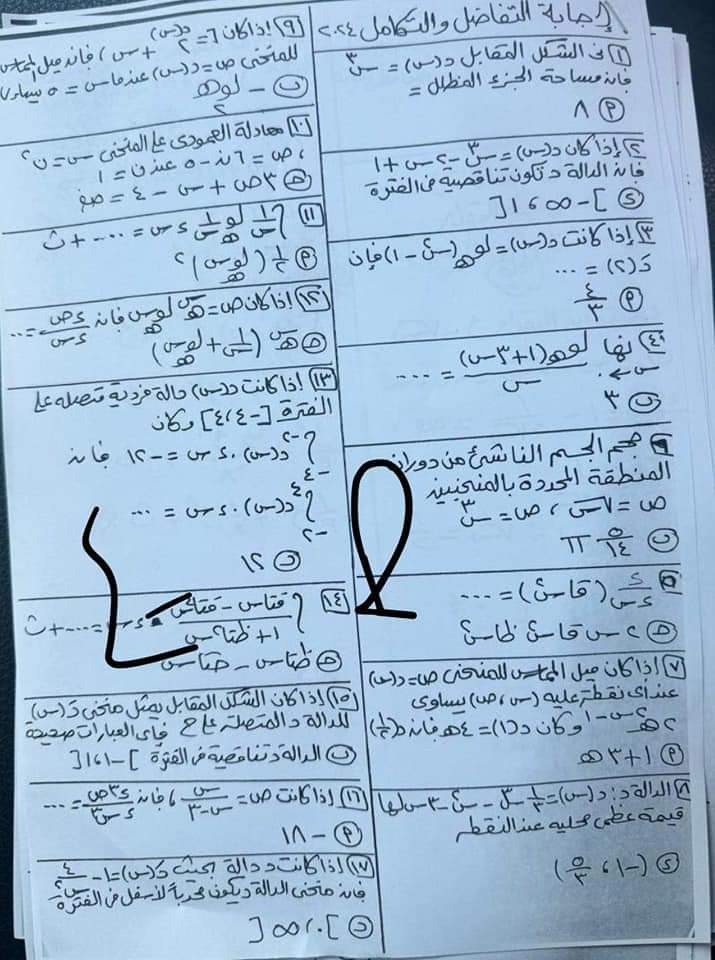 إجابة التفاضل والتكامل ٢٠٢٤
١ فى الشكل المقابل د(س) = س٣
فإن مساحة الجزء المظلل =
٨
٢ إذا كان د(س) = س٣ - ٢س + ١
فإن الدالة د تكون تناقصية فى الفترة
]-∞، ١[
٣ إذا كانت د(س) = لو هـ (س٢ - ١) فإن
د(٢) = ...
٤/٣
٤ نها لو هـ (١ + ٣س) / س = ...
س ← ٠
٣
حجم الجسم الناشئ من دوران
المنطقة المحددة بالمنحنيين
ص = √س ، ص = س٣
٥/١٤ π
ء/ءس (قاس٢) = ...
٢س قاس٢ ظاس٢
٧ إذا كان ميل المماس للمنحنى ص = د(س)
عند أى نقطة عليه (س، ص) يساوى
وكان د(١) = ٤هـ فإن
١ + ٣هـ
٨ الدالة د: د(س) = ١/٣ س٣ - س٢ - ٣س لها
قيمة عظمى محلية عند النقطة
(-١، ٥/٣)
٩ إذا كان
فإن ميل المماس
للمنحنى ص = د(س) عند س = ٥ يساوى
- لو هـ ٢
١٠ معادلة العمودى على المنحنى س = ن٢
، ص = ٦ن - ٥ عند ن = ١
٣ص + س - ٤ = صفر
١١ ∫ ١/س لو هـ ١/س ءس = ... + ث
١/٢ (لو هـ س)٢
١٢ إذا كان ص = هـ^س لو هـ س فإن ءص/ءس = ...
هـ^س (١/س + لو هـ س)
١٣ إذا كانت د(س) دالة فردية متصلة على
الفترة [-٤، ٤] وكان
∫ د(س) . ءس = -١٢ فإن
∫ د(س) . ءس = ...
١٢
١٤ ∫ ١ + ظتا٢س ءس = ... + ث
ظتاس - حتاس
١٥ إذا كان الشكل المقابل يمثل منحنى د(س)
للدالة د المتصلة على ح فأى العبارات صحيحة
الدالة د تناقصية فى الفترة ]-١، ١[
١٦ إذا كانت ص = س/(س-٣)، فإن ء٣ص/ءس٣ = ...
-١٨
١٧ إذا كانت د دالة بحيث د(س) = ١ - ٤/س٢
فإن منحنى الدالة د يكون محدباً لأسفل فى الفترة
]٠، ∞[